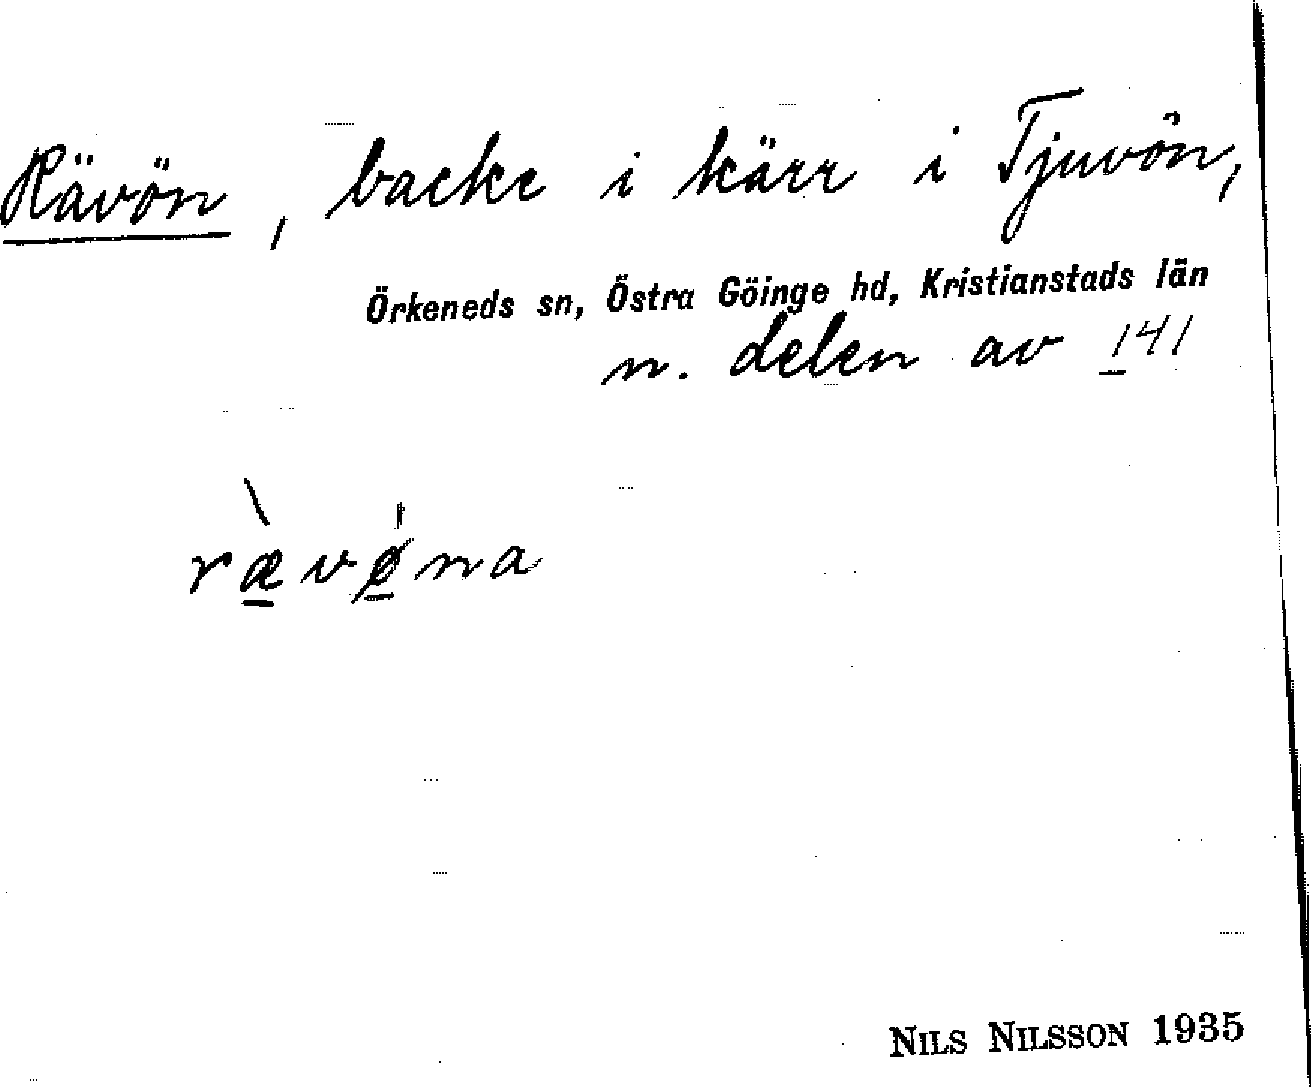 Rävön, backe i kärr i Tjuvön,
Örkeneds sn, Östra Göinge hd, Kristianstads län
n. delen av 141
rævøna
NILS NILSSON 1935